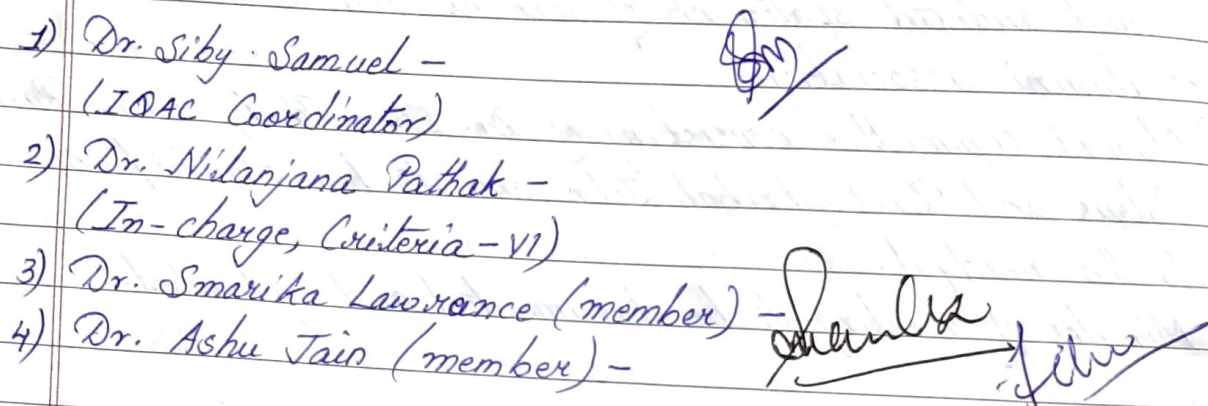 1) Dr. Siby Samuel -
(IQAC Coordinator)
2) Dr. Nilanjana Pathak -
(In-charge, Criteria-VI)
3) Dr. Smarika Lawrance (member) -
4) Dr. Ashu Jain (member) -